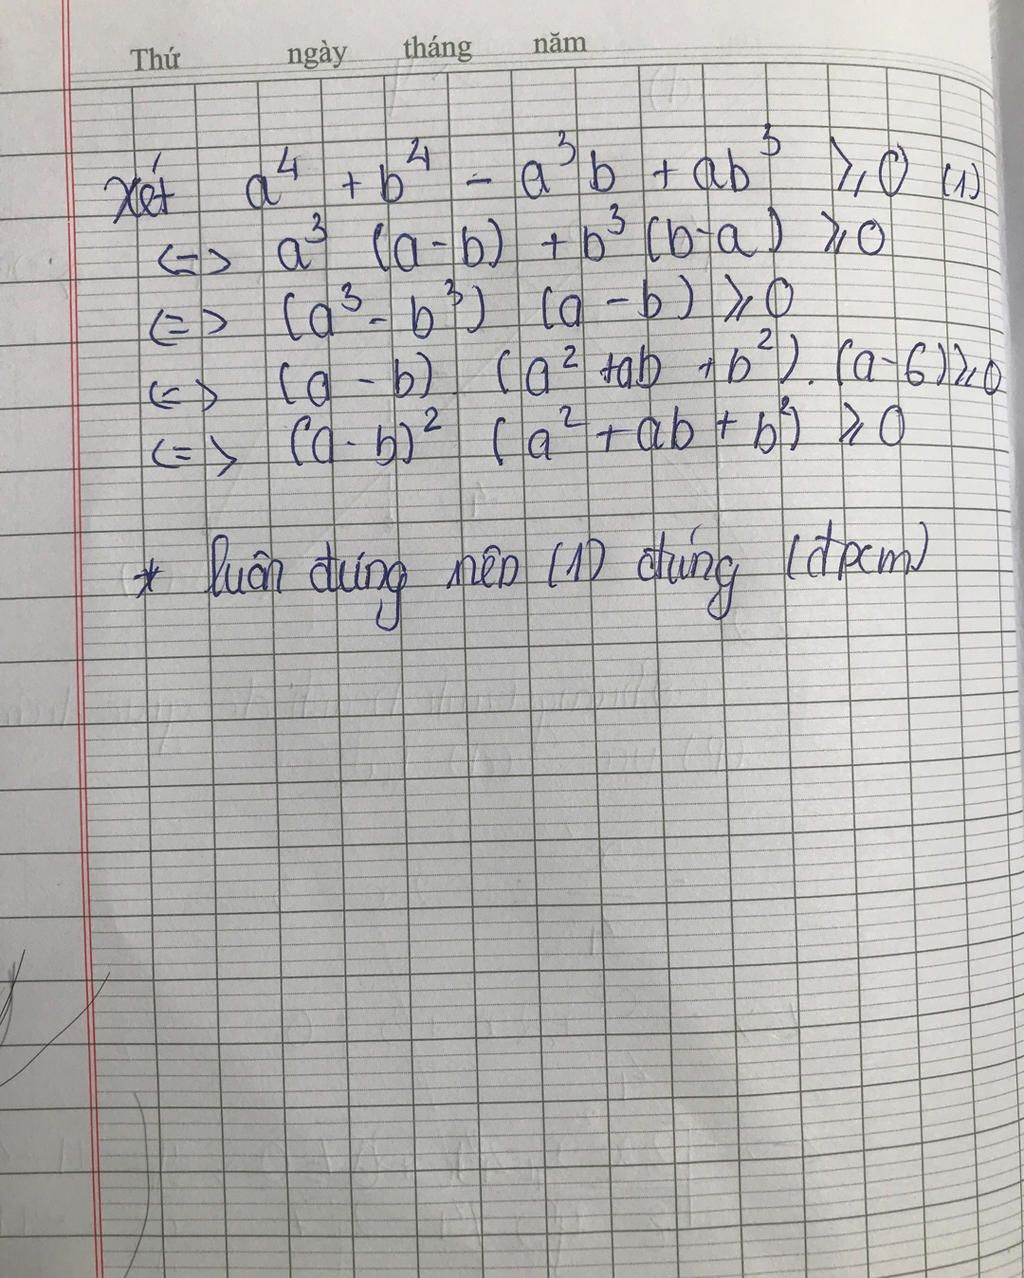 Thứ ngày tháng năm
Xét a⁴ + b⁴ - a³b + ab³ ⩾ 0 (1)
<=> a³ (a-b) + b³ (b-a) ⩾ 0
<=> (a³ - b³) (a - b) ⩾ 0
<=> (a - b) (a² + ab + b²) . (a - b) ⩾ 0
<=> (a-b)² (a² + ab + b²) ⩾ 0
* luôn đúng nên (1) đúng (đpcm)